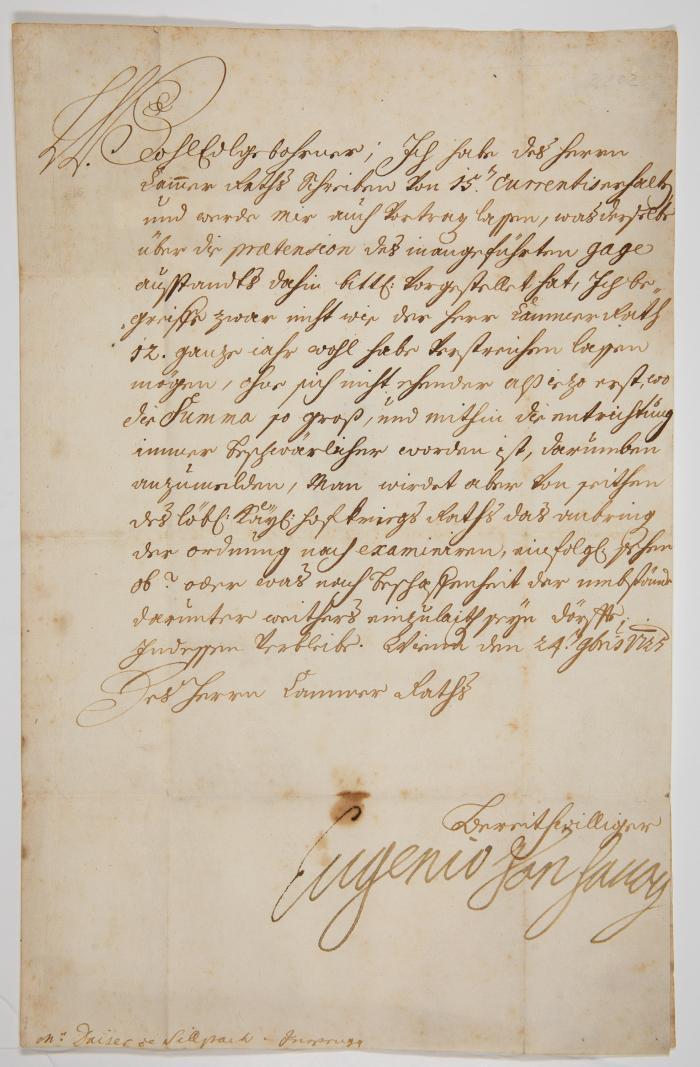 WohlEdlgebohrner; Ich habe des Herrn
Cammer Raths Schreiben von 15.ten currentis erhalten
und werde mir auch Vortrag lassen, was derselbe
über die praetension des inangeführten gage
ausstandts dahin bittl: vorgestellet hat, Ich be-
greiffe zwar nicht wie der Herr Cammer Rath
12. ganze iahr wohl habe verstreichen lassen
mögen, ohne sich nicht ehender alß iezo erst, wo
die Summa so groß, und mithin die entrichtung
immer beschwärlicher worden ist, darumben
anzumelden, Man wirdet aber von seithen
des löbl: Kayl: Hofkriegs Raths das anbringen
der ordnung nach examiniren, einfolgl. sehen
ob? oder was nach beschaffenheit der umbstände
darunter weithers seyn dörffte;
Indessen verbleibe. Wienn den 24.ten 9bris 1725
Des Herrn Cammer Raths
Bereithwilliger
Eugenio Von Savoy